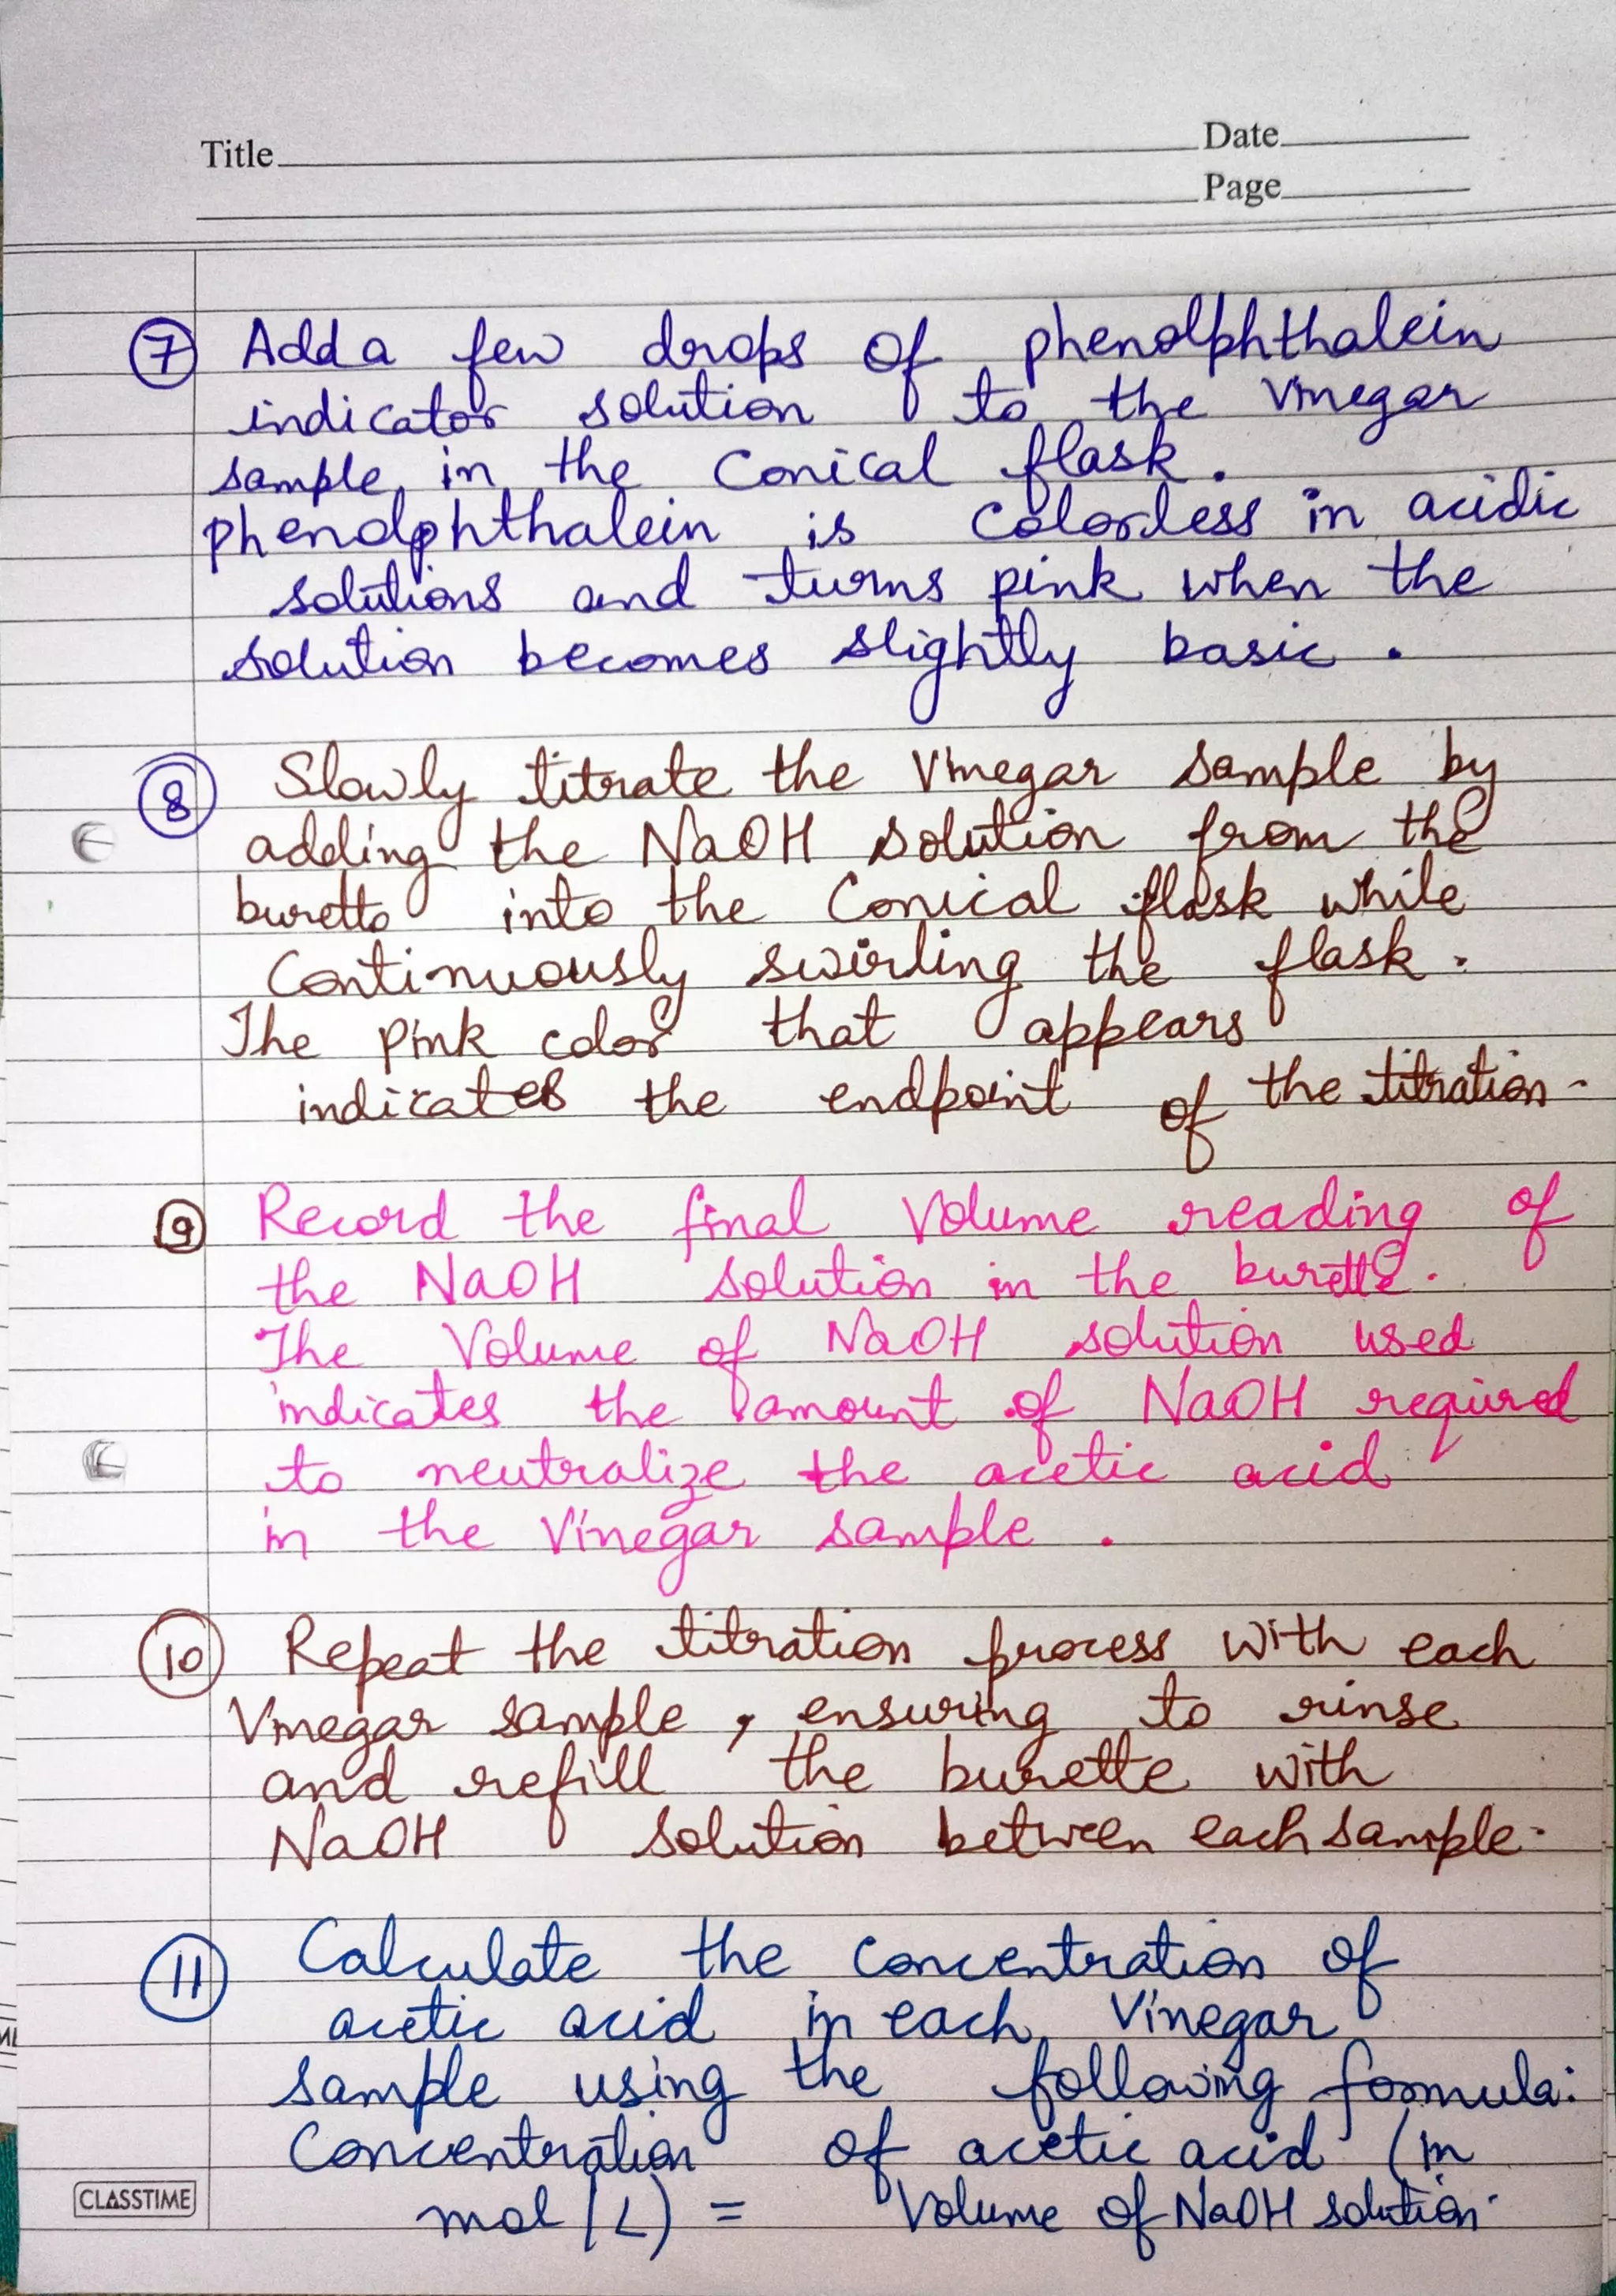 Title
Date
Page
7 Add a few drops of phenolphthalein
indicator solution to the Vinegar
sample in the Conical flask.
phenolphthalein is Colorless in acidic
solutions and turns pink when the
solution becomes slightly basic.
8 Slowly titrate the Vinegar sample by
adding the NaOH solution from the
burette into the Conical flask while
Continuously swirling the flask.
The pink color that appears
indicates the endpoint of the titration.
9 Record the final Volume reading of
the NaOH solution in the burette.
The Volume of NaOH solution used
indicates the amount of NaOH required
to neutralize the acetic acid
in the Vinegar sample.
10 Repeat the titration process with each
Vinegar sample, ensuring to rinse
and refill the burette with
NaOH solution between each sample.
11 Calculate the Concentration of
acetic acid in each Vinegar
sample using the following formula:
Concentration of acetic acid (in
mol/L) = Volume of NaOH solution
CLASSTIME